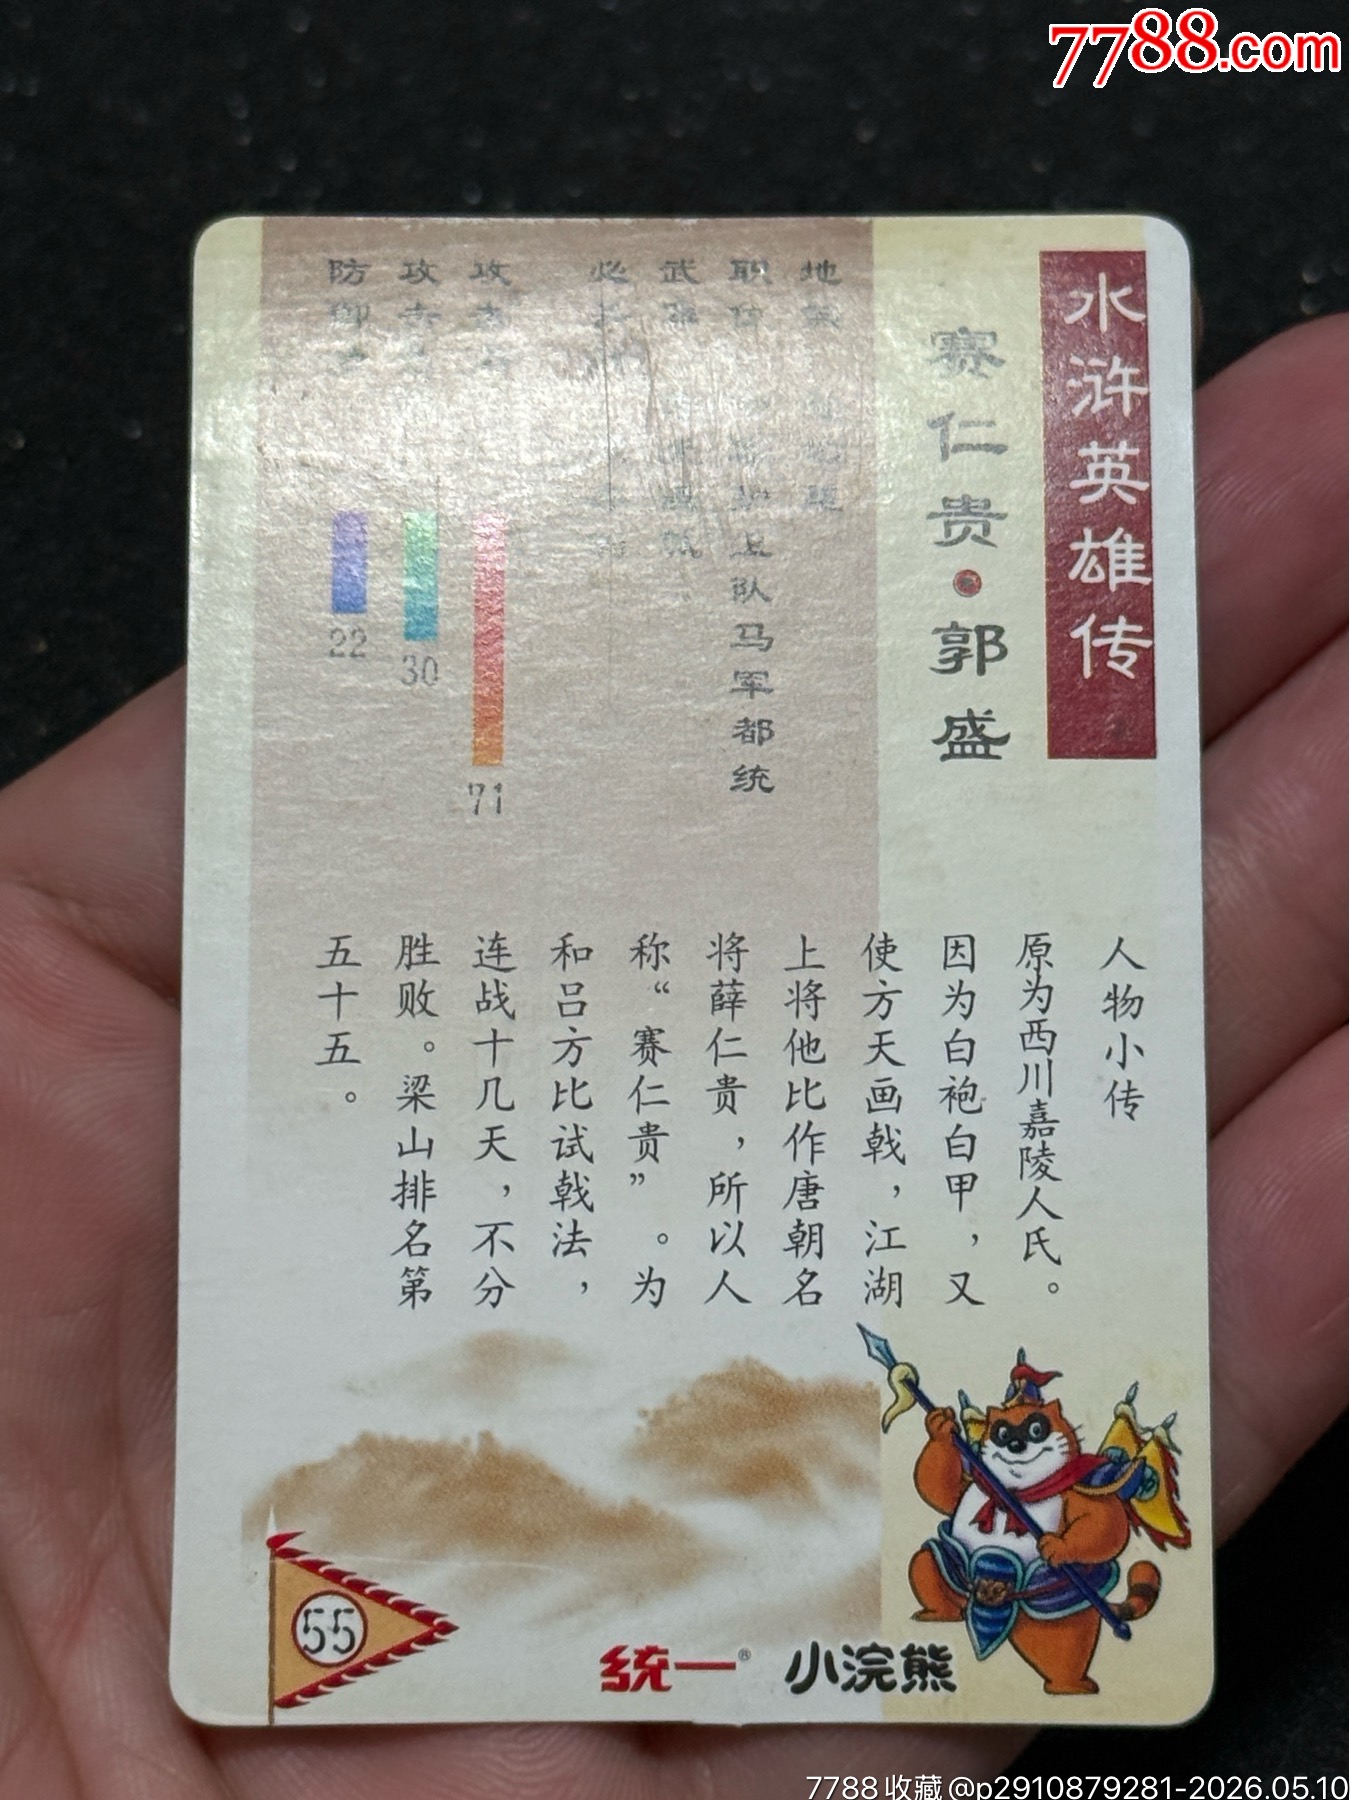 7788.com
水浒英雄传
赛仁贵·郭盛
地
职
卫队马军都统
武
必
攻
71
攻击
30
防御
22
人物小传
原为西川嘉陵人氏。
因为白袍白甲，又
使方天画戟，江湖
上将他比作唐朝名
将薛仁贵，所以人
称“赛仁贵”。为
和吕方比试戟法，
连战十几天，不分
胜败。梁山排名第
五十五。
55
统一® 小浣熊
7788收藏@p2910879281-2026.05.10